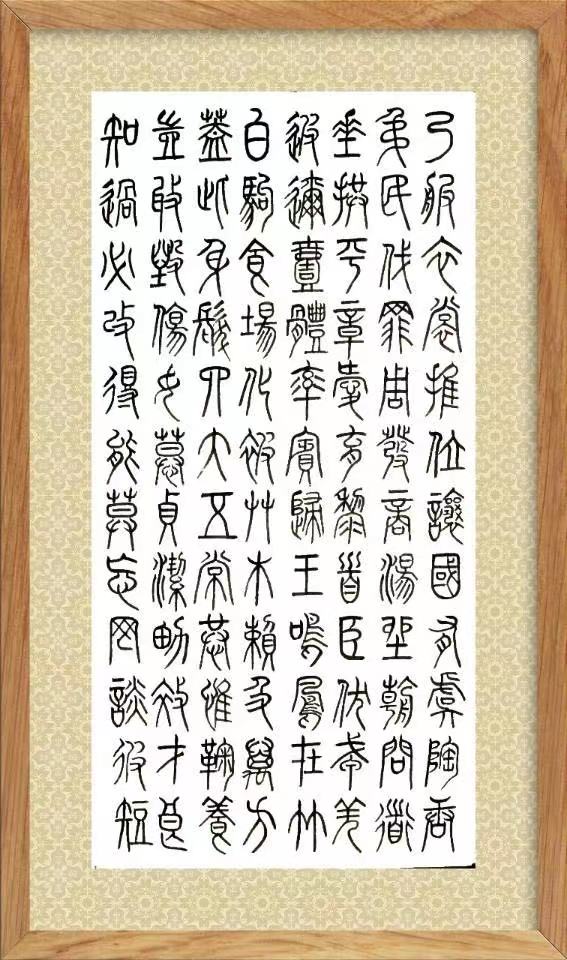 乃服衣裳推位讓國有虞陶唐
弔民伐罪周發商湯坐朝問道
垂拱平章愛育黎首臣伏戎羌
遐邇壹體率賓歸王鳴鳳在竹
白駒食場化被草木賴及萬方
蓋此身髮四大五常恭惟鞠養
豈敢毀傷女慕貞潔男效才良
知過必改得能莫忘罔談彼短